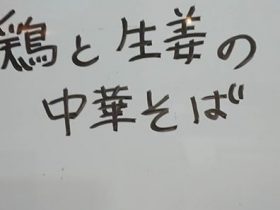 鶏と生姜の
中華そば